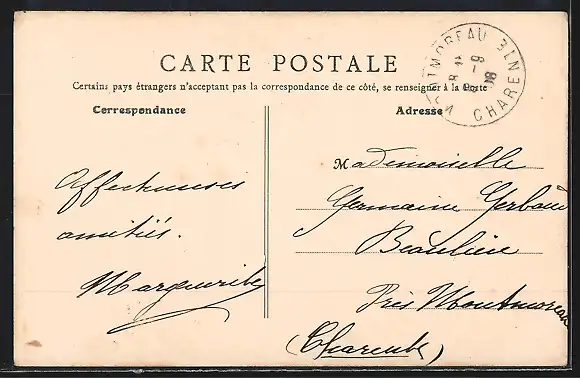 MONTMOREAU
CHARENTE
CARTE POSTALE
Certains pays étrangers n'acceptent pas la correspondance de ce côté, se renseigner à la Poste
Correspondance
Adresse
Affectueuses
amitiés.
Marguerite
Mademoiselle
Germaine
Beaulieu
Près Montmoreau
(Charente)